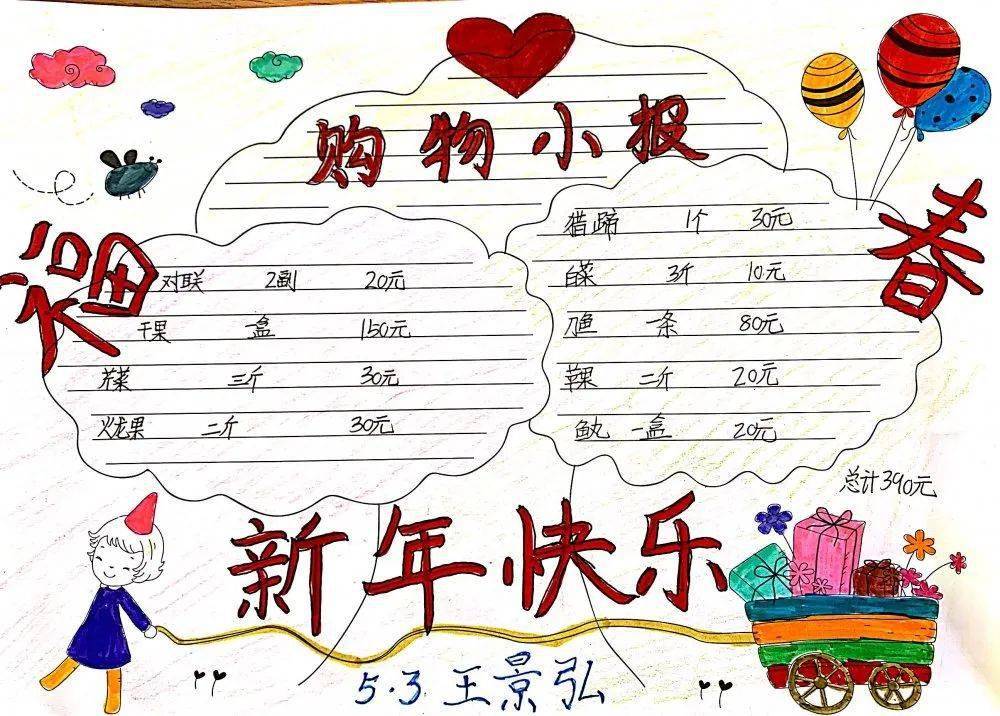 购物小报
福
春
对联 2副 20元
干果 一盒 150元
芹菜 三斤 30元
火龙果 二斤 30元
猎蹄 1个 30元
白菜 3斤 10元
鱼 一条 80元
苹果 二斤 20元
鱼丸 一盒 20元
总计390元
新年快乐
5·3 王景弘